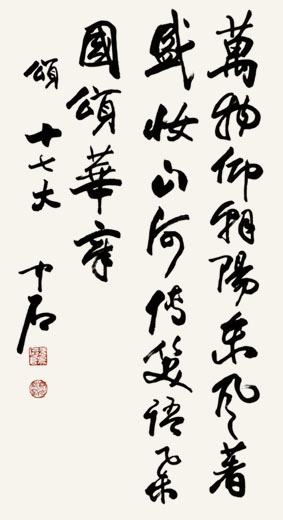 萬物仰朝陽東風著
盛妝山河傳笑語舉
國頌華章
頌十七大 中石